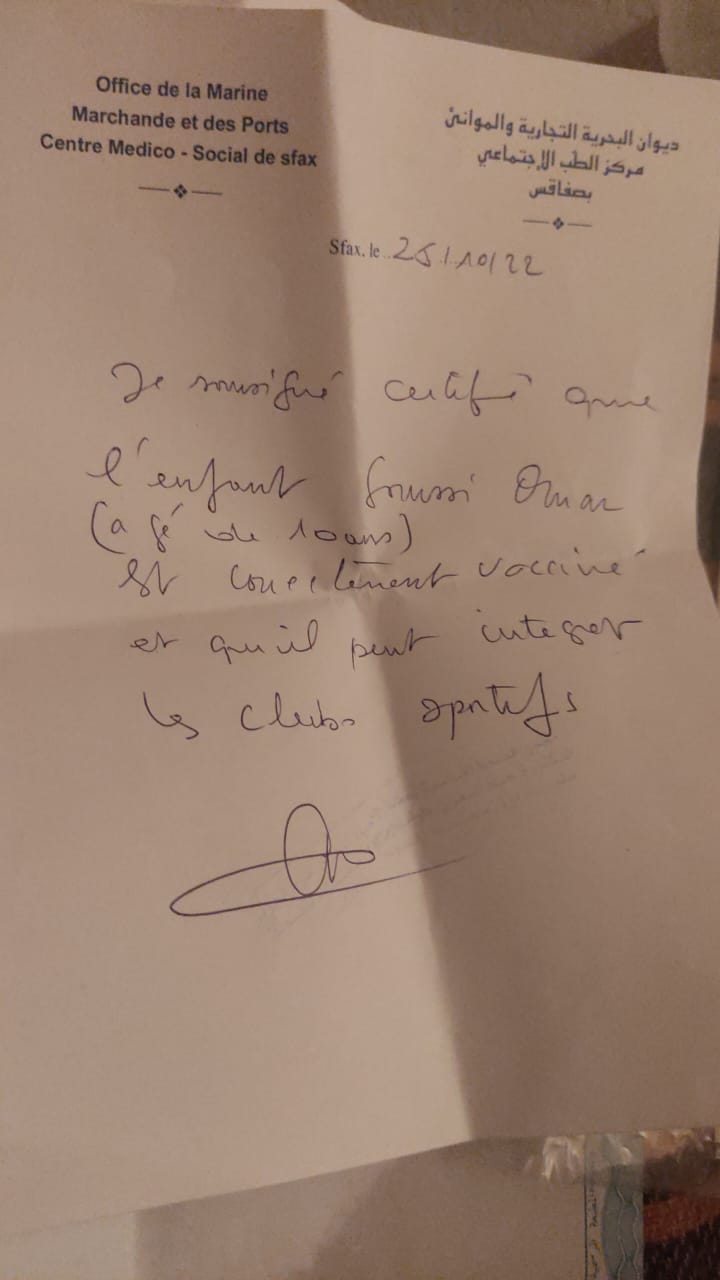 Office de la Marine
Marchande et des Ports
Centre Medico - Social de sfax
ديوان البحرية التجارية والموانئ
مركز الطب الإجتماعي
بصفاقس
Sfax, le 25/10/22
Je soussigné certifié que
l'enfant Omar
(agé de 10 ans)
Est correctement vacciné
et qu'il peut integrer
les clubs sportifs